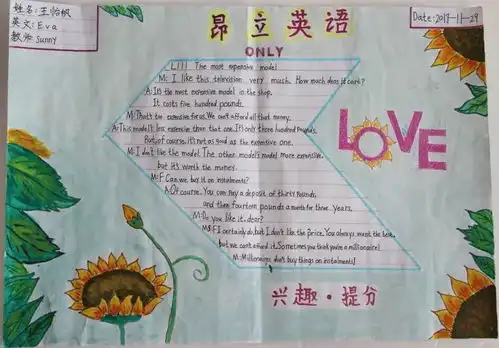 姓名:王怡帆
英文:Eva
教师:Sunny
昂立英语
Date:2017-11-29
ONLY
L111 The most expensive model
M: I like this television very much. How much does it cost?
A: It's the most expensive model in the shop.
It costs five hundred pounds.
M: That's too expensive for us. We can't afford all that money.
A: This model's less expensive than that one. It's only three hundred pounds.
But, of course, it's not as good as the expensive one.
M: I don't like the model. The other model's more expensive,
but it's worth the money.
M:F Can we buy it on instalments?
A: Of course. You can pay a deposit of thirty pounds,
and then fourteen pounds a month for three years.
M: Do you like it, dear?
F I certainly do, but I don't like the price. You always want the best,
but we can't afford it. Sometimes you think you're a millionaire!
M: Millionaires don't buy things on instalments!
LOVE
兴趣·提分